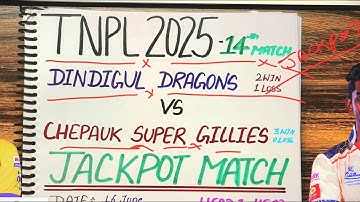 TNPL 2025 - 14th MATCH
Jackpot
DINDIGUL DRAGONS 2 WIN
1 LOSS
VS
CHEPAUK SUPER GILLIES 3 WIN
0 LOSS
JACKPOT MATCH
DATE: 16 June HEAD 2 HEAD